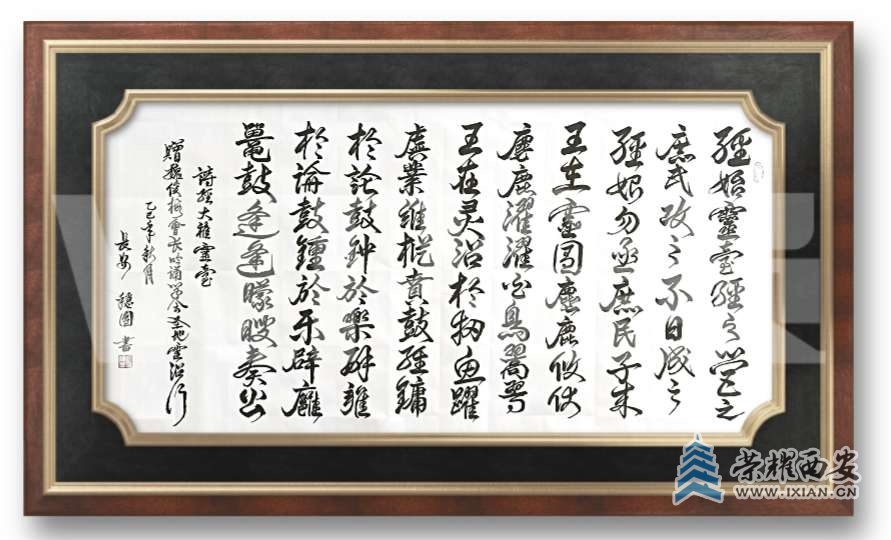 經始靈臺經之營之
庶民攻之不日成之
經始勿亟庶民子来
王在靈囿麀鹿攸伏
麀鹿濯濯白鳥翯翯
王在灵沼於牣魚躍
虡業維樅賁鼓維鏞
於論鼓鐘於樂辟雍
於論鼓鐘於乐辟廱
鼉鼓逢逢矇瞍奏公
詩經大雅靈臺
會长吟誦学会圣地靈沼行
乙巳年秋月
長安 書
荣耀西安
WWW.IXIAN.CN